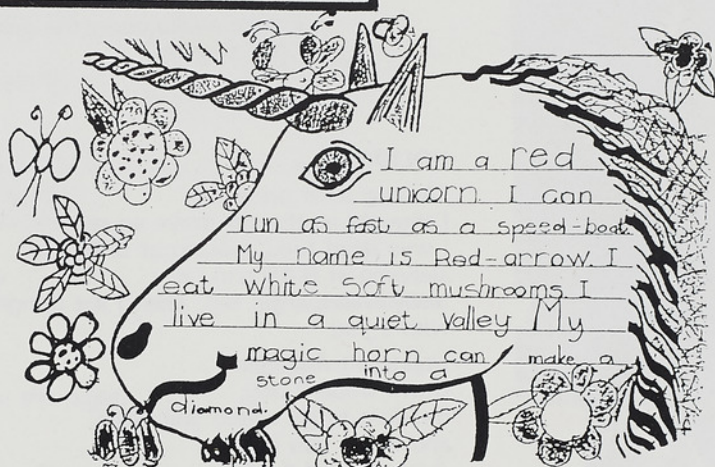 I am a red
unicorn. I can
run as fast as a speed-boat.
My name is Red-arrow. I
eat white soft mushrooms. I
live in a quiet valley My
magic horn can make a
stone into a
diamond.